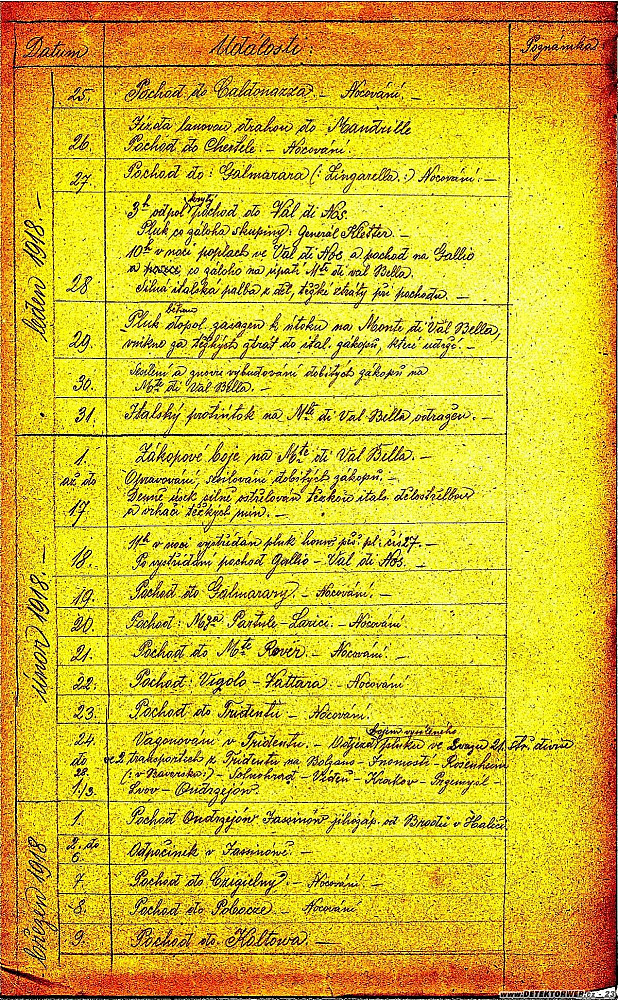 Datum Události: Poznámka
leden 1918. –
25. Pochod do Caldonazza. – Nocování. –
26. Jízda lanovou drahou do Mandrille
Pochod do Chertele. – Nocování.
27. Pochod do: Galmarara (: Zingarella. :) Nocování. –
28. 3h odpol. krytý pochod do Val di Nos.
Pluk co záloha skupiny: Generál Kletter. –
10h v noci poplach ve Val di Nos a pochod na Gallio
a pozěcí co záloha na úpatí Mte di val Bella.
Silná italská palba z děl, těžké ztráty při pochodu. –
29. Pluk dopol. zasazen k útoku na Monte di Val Bella,
vnikne za těžkých ztrát do ital. zákopů, které udrží. –
30. Sesílení a znovu vybudování dobitých zákopů na
Mte di Val Bella. –
31. Italský protiútok na Mte di Val Bella odražen. –
únor 1918. –
1. až do 17. Zákopové boje na Mte di Val Bella. –
Opravování, sesilování dobitých zákopů. –
Denně úsek silně ostřelován těžkou itals. dělostřelbou
a vrhači těžkých min. –
18. 11h v noci vystřídán pluk honv. pěš. pl. čís 27. –
Po vystřídání pochod Gallio – Val di Nos. –
19. Pochod do Galmarary. – Nocování. –
20. Pochod: Mga Partule – Larici. – Nocování
21. Pochod do Mte Rovér. – Nocování. –
22. Pochod: Vigolo – Vattara. – Nocování
23. Pochod do Tridentu. – Nocování.
24. do 28. 1./3. Vagonování v Tridentu. – Odjezd pluku ve svazu 21. stř. divise
ve 2 transportech z Tridentu na Bolzano – Inomostí – Rosenheim
(: v Bavorsku :) – Solnohrad – Vídeň – Krakov – Przemysl –
Lvov – Ondrzejów.
březen 1918
1. Pochod Ondrzejów Jassinów jihozáp. od Brodů v Haliči
2. do 6. Odpočinek v Jassinowě. –
7. Pochod do Czigielny. – Nocování. –
8. Pochod do Pobocze. – Nocování
9. Pochod do Koltowa. –
www.DETEKTORWEB.cz - 23